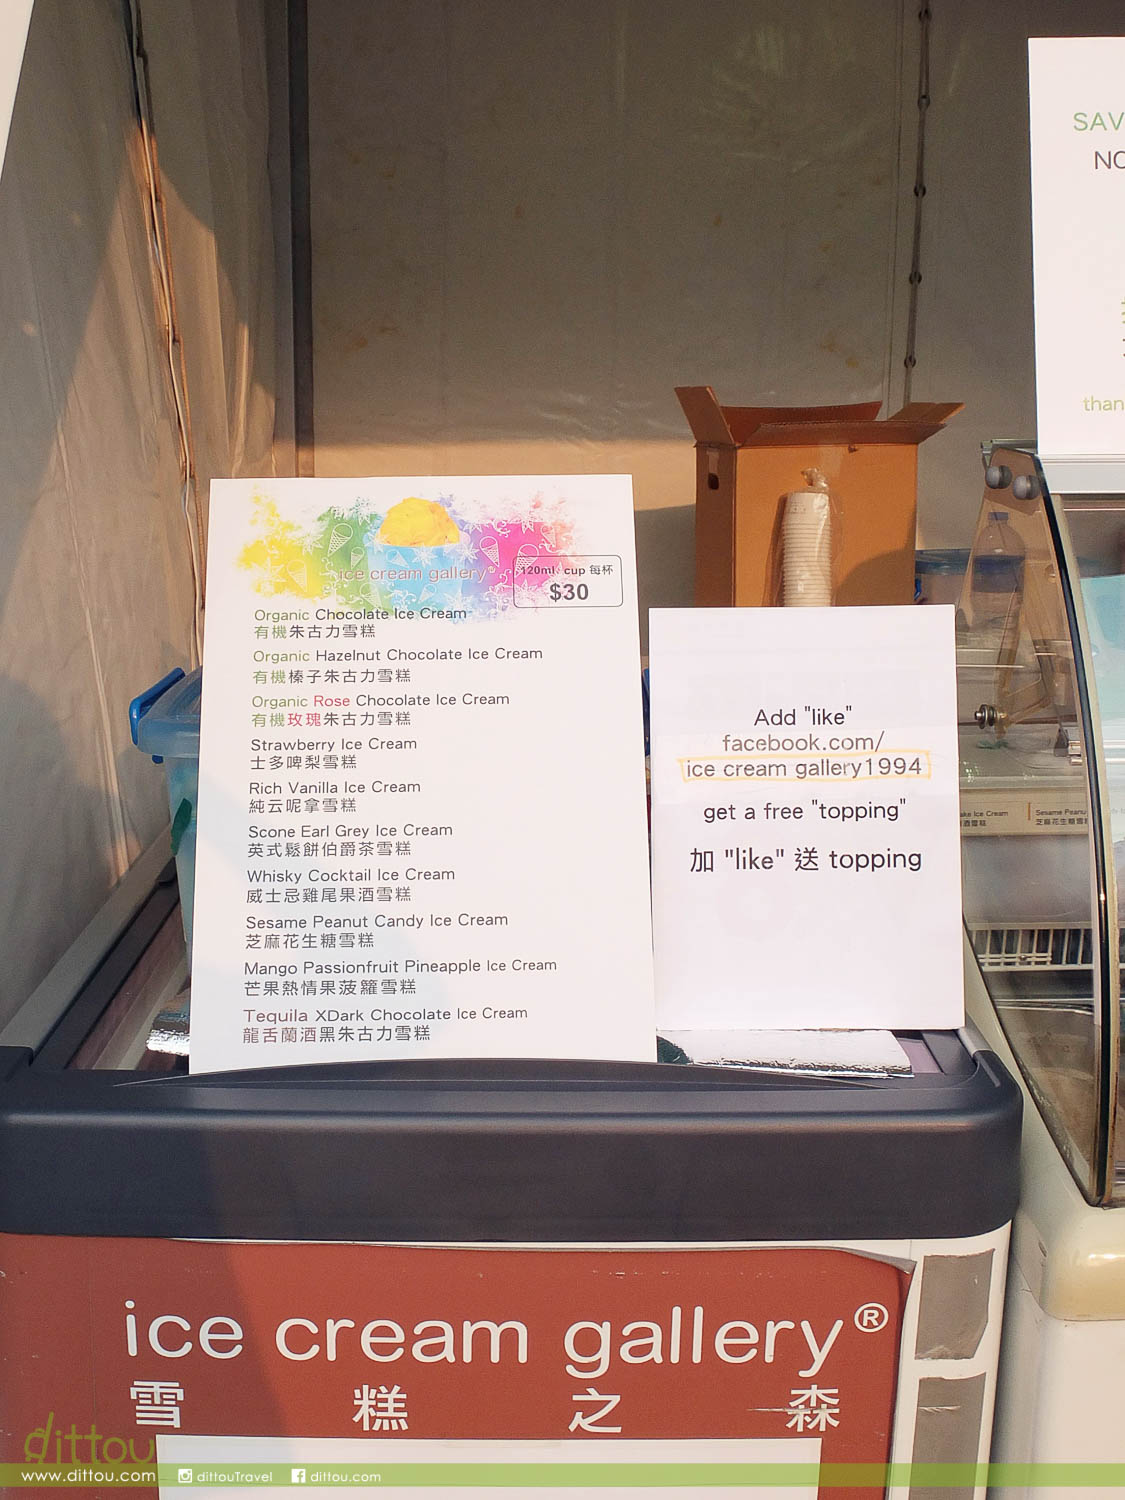 ice cream gallery®
120ml. cup 每杯
$30
Organic Chocolate Ice Cream
有機朱古力雪糕
Organic Hazelnut Chocolate Ice Cream
有機榛子朱古力雪糕
Organic Rose Chocolate Ice Cream
有機玫瑰朱古力雪糕
Strawberry Ice Cream
士多啤梨雪糕
Rich Vanilla Ice Cream
純云呢拿雪糕
Scone Earl Grey Ice Cream
英式鬆餅伯爵茶雪糕
Whisky Cocktail Ice Cream
威士忌雞尾果酒雪糕
Sesame Peanut Candy Ice Cream
芝麻花生糖雪糕
Mango Passionfruit Pineapple Ice Cream
芒果熱情果菠籮雪糕
Tequila XDark Chocolate Ice Cream
龍舌蘭酒黑朱古力雪糕
Add "like"
facebook.com/
ice cream gallery1994
get a free "topping"
加 "like" 送 topping
SAV
NO
than
Ice Cream
酒雪糕
Sesame Peanu
芝麻花生糖雪
ice cream gallery®
雪糕之森
dittou
www.dittou.com dittouTravel dittou.com